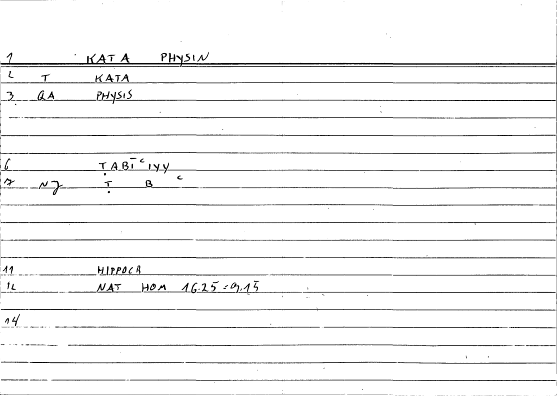 1 KATA PHYSIN
2 T KATA
3 QA PHYSIS
6 ṬABĪʿIYY
7 NJ Ṭ B ʿ
11 HIPPOCR
12 NAT HOM 16.25 = 9.15
14